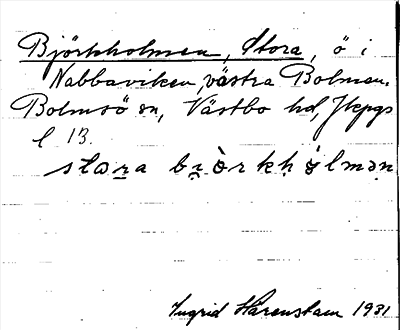 Björkholmen, Stora, ö i
Nabbaviken, västra Bolmen.
Bolmsö sn, Västbo hd, Jkpgs
l 13.
stora bi̯òrkḥólmən
Ingrid Härenstam 1931